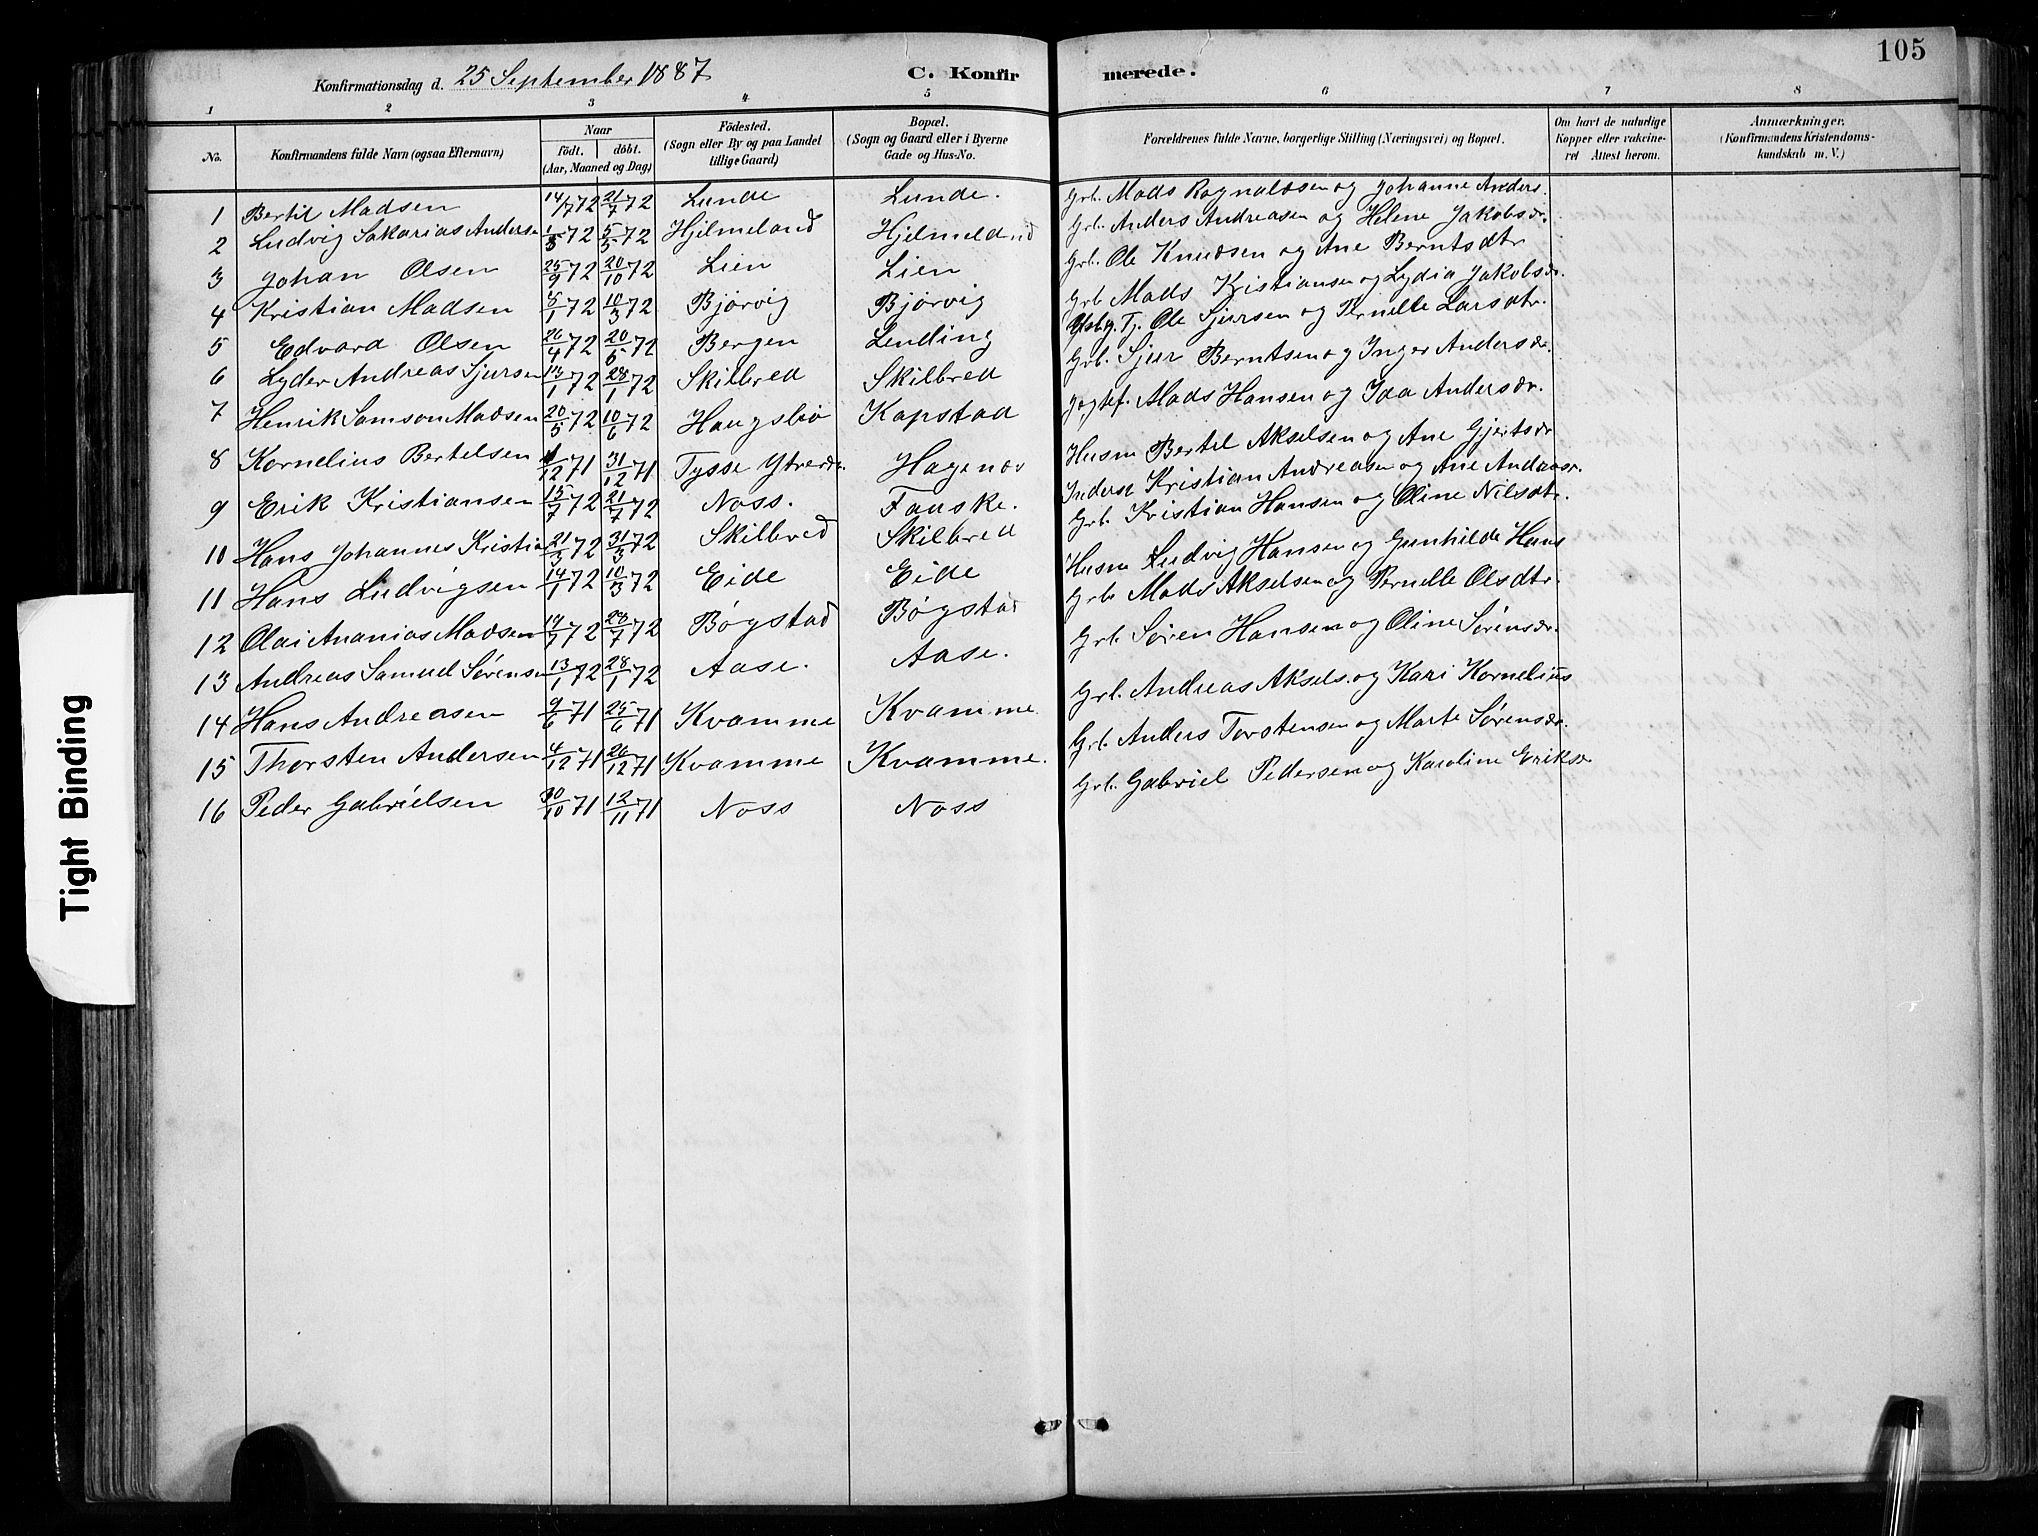 105
Konfirmationsdag d. 25 September 1887
C. Konfirmerede.
1 2 3 4 5 6 7 8
No.
Konfirmandens fulde Navn (ogsaa Efternavn)
Naar
födt. döbt.
(Aar, Maaned og Dag)
Födested.
(Sogn eller By og paa Landet
tillige Gaard)
Bopæl.
(Sogn og Gaard eller i Byerne
Gade og Hus-No.
Forældrenes fulde Navne, borgerlige Stilling (Næringsvei) og Bopæl.
Om havt de naturlige
Kopper eller vakcine-
ret Attest herom.
Anmærkninger.
(Konfirmandens Kristendoms-
kundskab m. V.)
1 Bertil Madsen 14/7 72 21/7 72 Lunde Lunde. Grb. Mads Ragnaldsen og Johanne Anders.
2 Ludvig Sakarias Anderse 72 5/5 72 Hjelmeland Hjelmeland Grb. Anders Andreasen og Helene Jakobsdr.
3 Johan Olsen 25/9 72 20/10 72 Lien Lien Grb. Ole Knudsen og Ane Berntsdtr
4 Kristian Madsen /1 72 10/3 72 Bjørvig Bjørvig Grb Mads Kristiansen og Lydia Jakobsdr.
5 Edvard Olsen 26/4 72 20/5 72 Bergen Lending Tj. Ole Sjursen og Pernelle Larsdtr.
6 Lyder Andreas Sjursen 13/1 72 28/1 72 Skilbred Skilbred Grb. Sjur Berntsen og Inger Andersdr.
7 Henrik Samson Madsen 20/5 72 10/6 72 Haugsbø Kapstad Mads Hansen og Ida Andersdr.
8 Kornelius Bertelsen /12 71 31/12 71 Tysse Ytrerdr. Hagenæs Husm Bertel Akselsen og Ane Gjertsdr
9 Erik Kristiansen 15/7 72 21/7 72 Noss. Fauske. Inderst Kristian Andreasen og Ane Andreasr.
10 Hans Johannes Kristia 21/3 72 31/3 72 Skilbred Skilbred Grb. Kristian Hansen og Oline Nilsdtr.
11 Hans Ludvigsen 14/1 72 10/3 72 Eide Eide Husm Ludvig Hansen og Gunhilde Hans
12 Olai Ananias Madsen 19/7 72 28/7 72 Bøgstad Bøgstad Grb Mads Akselsen og Pernelle Olsdtr.
13 Andreas Samuel Sørense 13/1 72 28/1 72 Aase. Aase. Grb. Søren Hansen og Oline Sørensdr.
14 Hans Andreasen 9/6 71 25/6 71 Kvamme Kvamme. Grb. Andreas Aksels. og Kari Kornelius
15 Thorsten Andersen 4/12 71 26/12 71 Kvamme Kvamme. Grb. Anders Torstensen og Marte Sørensdr.
16 Peder Gabrielsen 30/10 71 12/11 71 Noss Noss Grb. Gabriel Pedersen og Karoline Eriksdr
Tight Binding